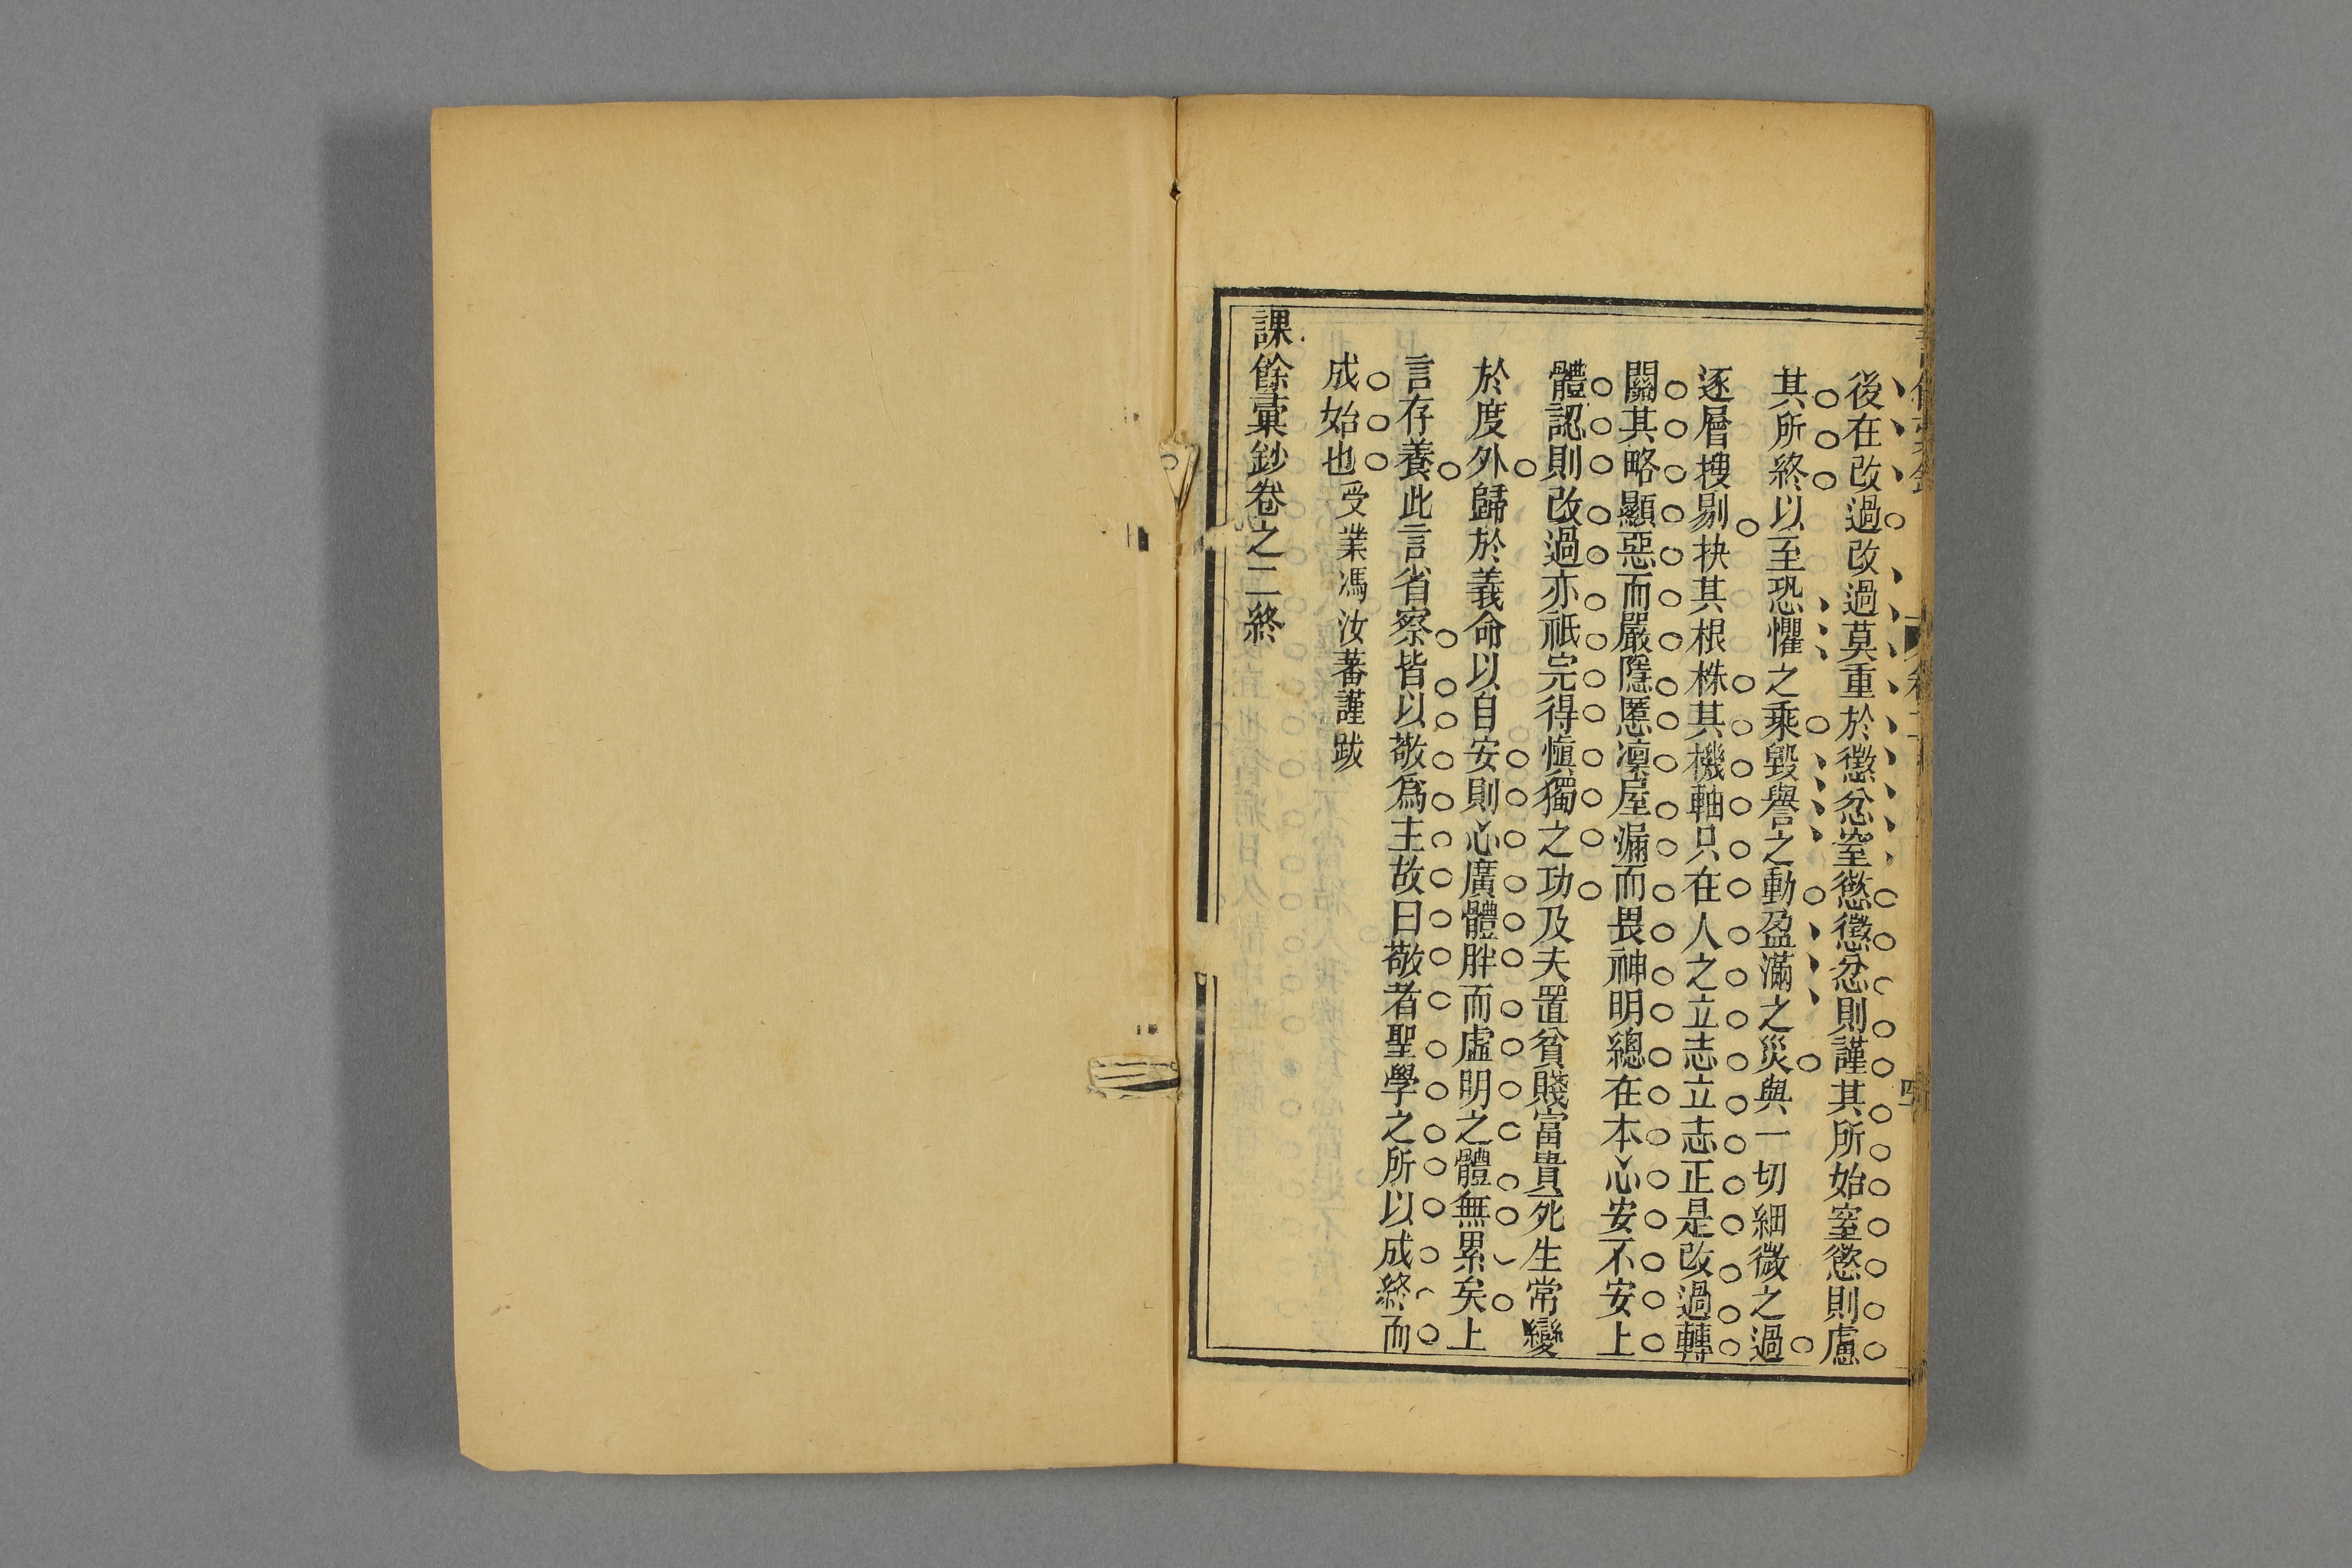 後在改過改過莫重於懲忿窒慾懲忿則謹其所始窒慾則慮
其所終以至恐懼之乘毀譽之動盈滿之災與一切細微之過
逐層搜剔抉其根株其機軸只在人之立志立志正是改過轉
關其略顯惡而嚴隱慝凜屋漏而畏神明總在本心安不安上
體認則改過亦祇完得愼獨之功及夫置貧賤富貴死生常變
於度外歸於義命以自安則心廣體胖而虛明之體無累矣上
言存養此言省察皆以敬爲主故曰敬者聖學之所以成終而
成始也受業馮汝蕃謹跋
課餘彙鈔卷之二終